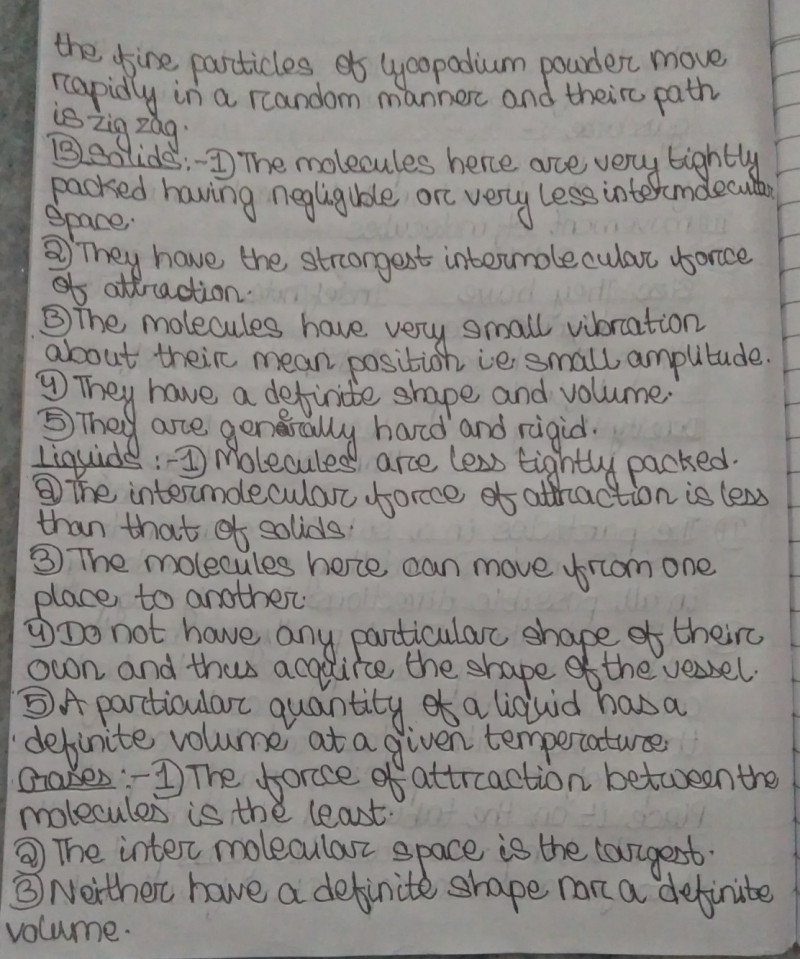 the fine particles of lycopodium powder move
rapidly in a random manner and their path
is zig zag.
(B) Solids:-① The molecules here are very tightly
packed having negligible or very less intermolecular
space.
② They have the strongest intermolecular force
of attraction.
③ The molecules have very small vibration
about their mean position ie small amplitude.
④ They have a definite shape and volume.
⑤ They are generally hard and rigid.
Liquids :-① Molecules are less tightly packed.
② The intermolecular force of attraction is less
than that of solids.
③ The molecules here can move from one
place to another.
④ Do not have any particular shape of their
own and thus acquire the shape of the vessel.
⑤ A particular quantity of a liquid has a
definite volume at a given temperature
Gases :-① The force of attraction between the
molecules is the least.
② The inter molecular space is the largest.
③ Neither have a definite shape nor a definite
volume.